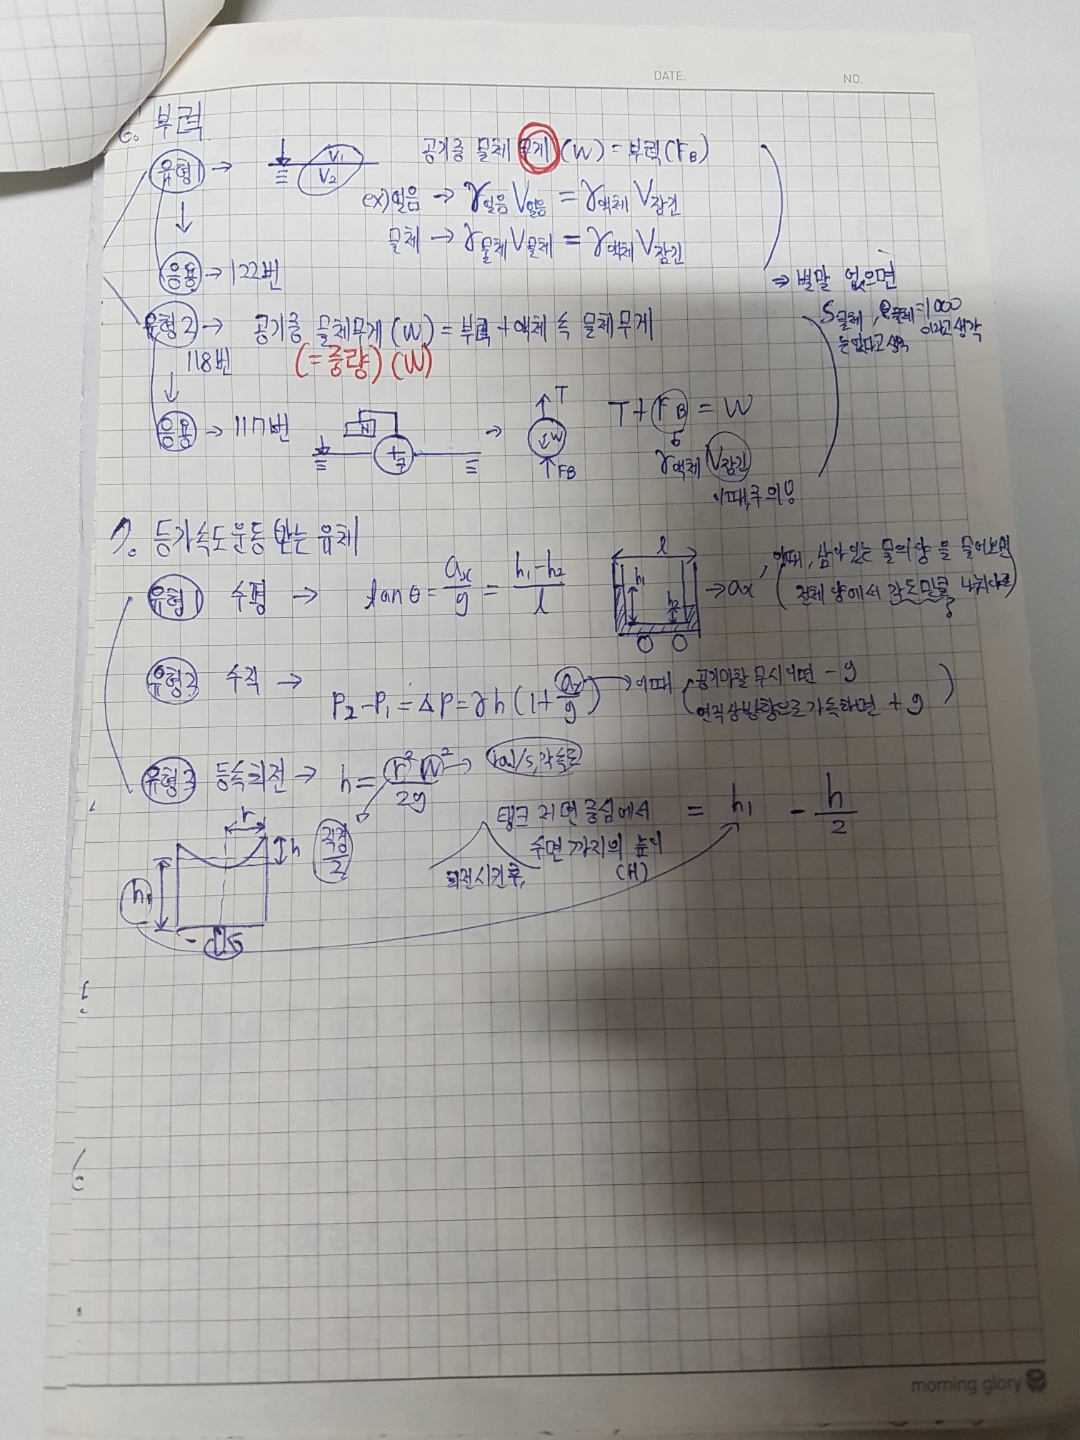 DATE. NO.
6. 부력
유형1 → V₁ V₂ 공기중 물체 무게 (W) = 부력 (FB)
ex) 얼음 → γ얼음 V얼음 = γ액체 V잠긴
물체 → γ물체 V물체 = γ액체 V잠긴
응용 → 122번
⇒ 별말 없으면
S물체, ρ물체=1000
이라고 생각
유형2 → 공기중 물체무게 (W) = 부력 + 액체 속 물체무게
118번 (=중량) (W)
응용 → 117번 → T W FB T + FB = W
γ액체 V잠긴
이때, 주의!
7. 등가속도운동 받는 유체
유형1 수평 → tanθ = ax/g = (h₁-h₂)/l l h₁ h₂ → ax
이때, 남아있는 물의 양을 물어보면
전체 양에서
유형2 수직 → P₂-P₁ = ΔP = γh (1 + ay/g) → 이때 (공기마찰 무시하면 -g
연직상방향으로 가속하면 +g)
유형3 등속회전 → h = r²W²/2g → rad/s, 각속도
직경/2
탱크 저면 중심에서 수면까지의 높이 (H) = h₁ - h/2
회전시킨후,
r h
h₁
morning glory